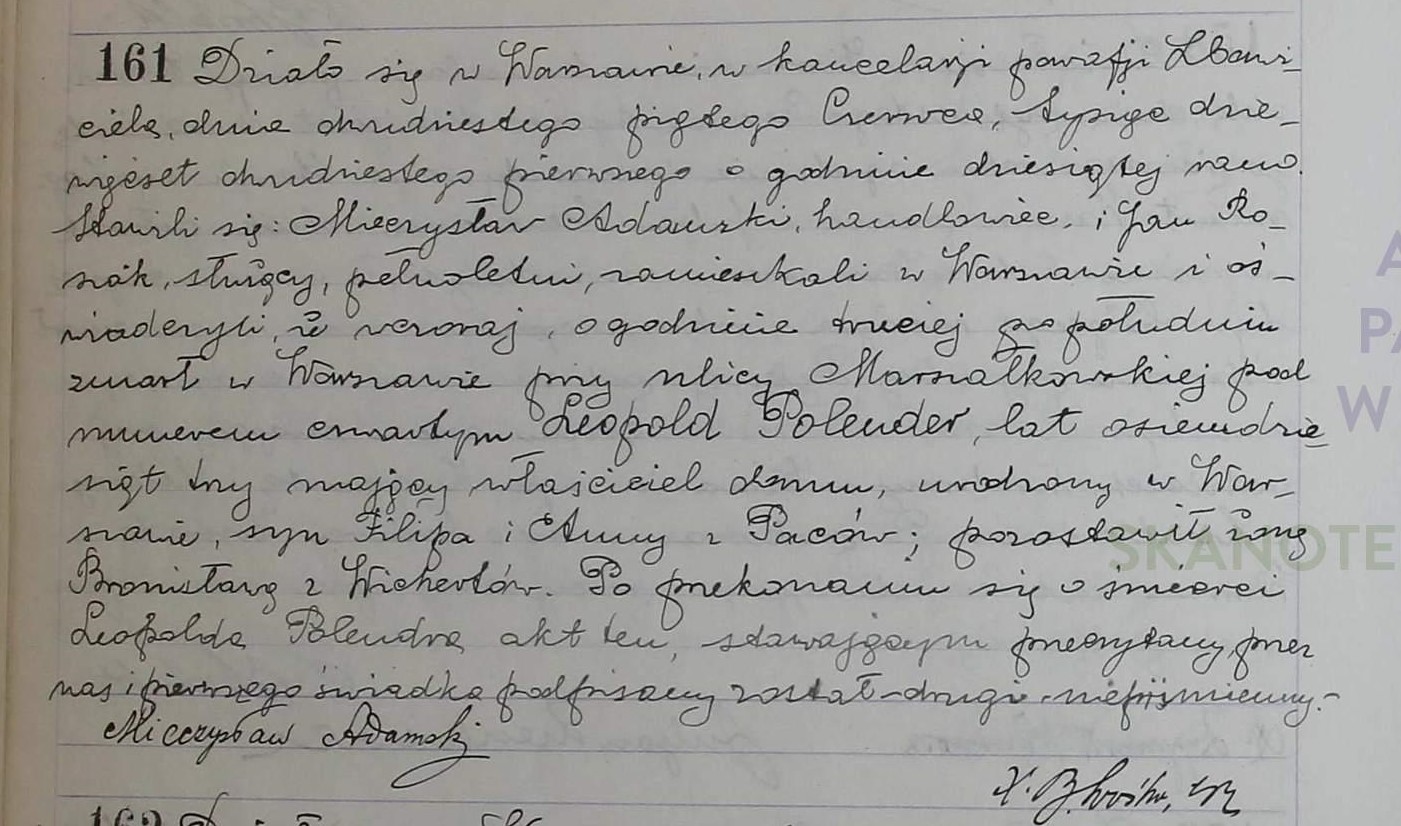 161 Działo się w Warszawie, w kancelarji parafji Zbawi-
ciela, dnia dwudziestego piątego Czerwca, tysiąc dzie-
więćset dwudziestego pierwszego o godzinie dziesiątej rano.
Stawili się: Mieczysław Adamski, handlowiec, i Jan Ro-
szak, służący, pełnoletni, zamieszkali w Warszawie i oś-
wiadczyli, że wczoraj, o godzinie trzeciej po południu
zmarł w Warszawie przy ulicy Marszałkowskiej pod
numerem czwartym Leopold Polender, lat osiemdzie
siąt trzy mający właściciel domu, urodzony w War-
szawie, syn Filipa i Anny z Paców; pozostawił żonę
Bronisławę z Wichertów. Po przekonaniu się o śmierci
Leopolda Polendra akt ten, stawającym przeczytany, przez
nas i pierwszego świadka podpisany został - drugi niepiśmienny.-
Mieczysław Adamski
X. B.
162 Działo
A
PA
W
SKANOTE